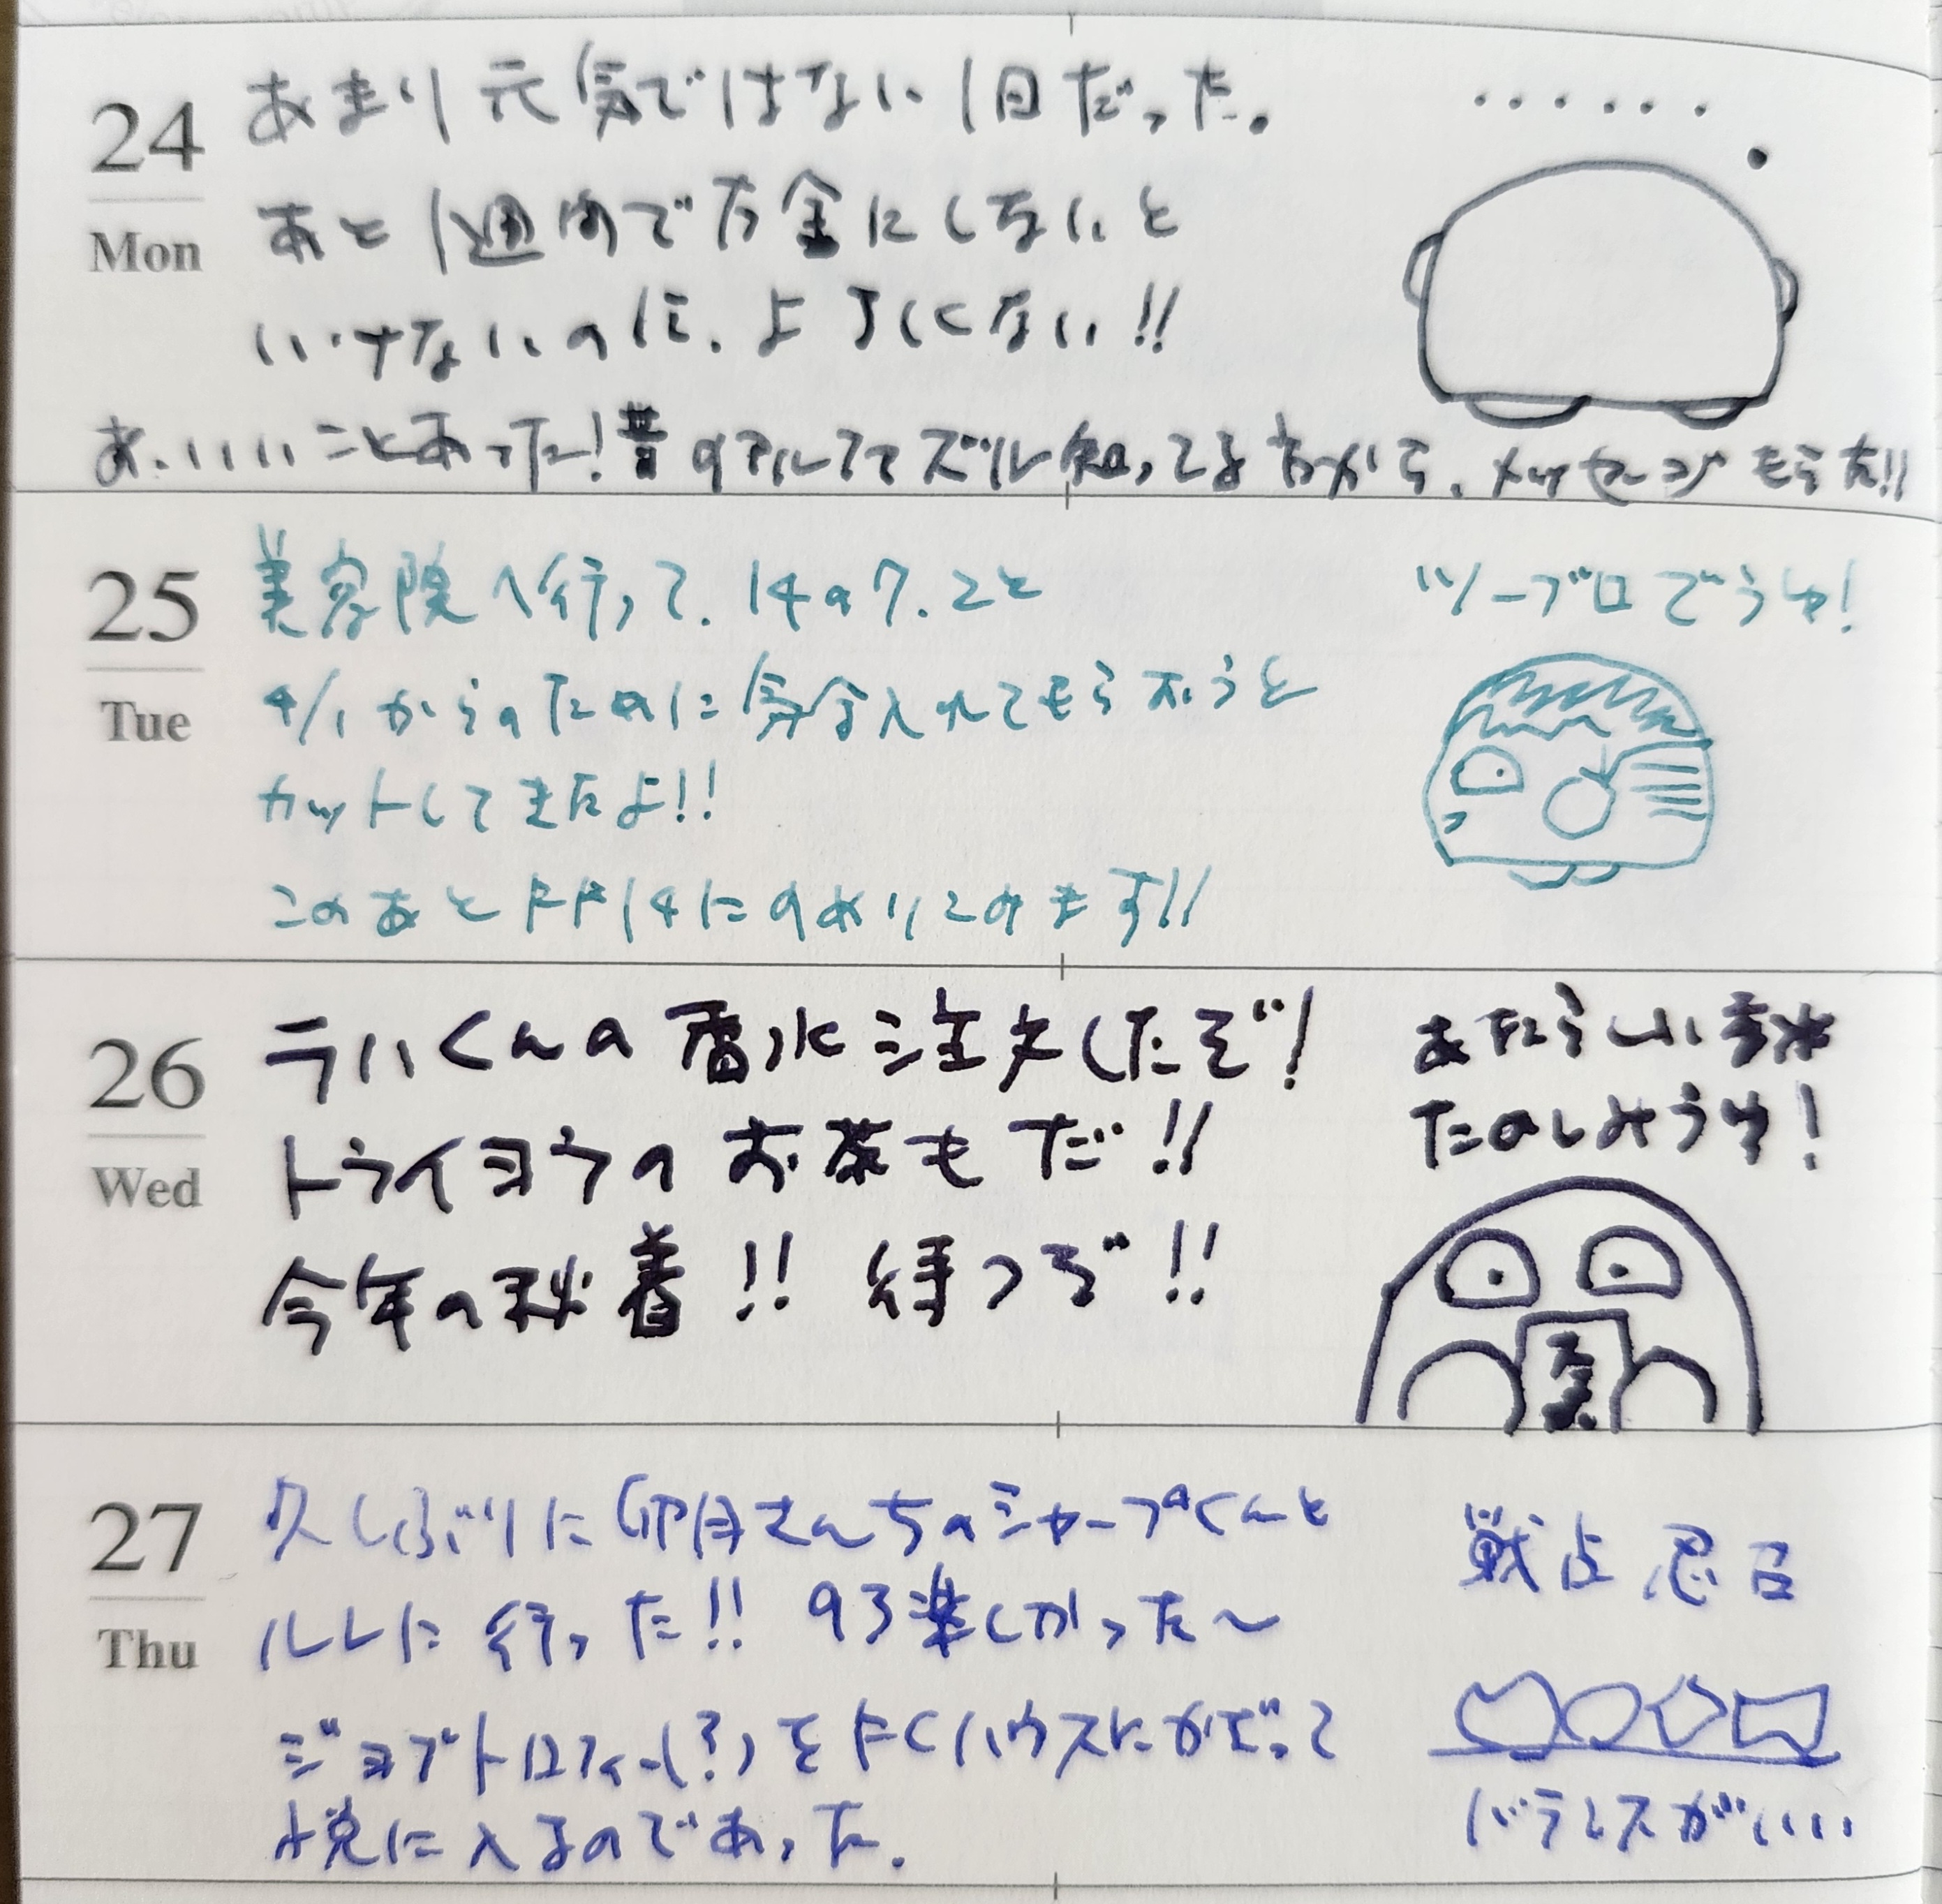 24
Mon
あまり元気ではない1日だった。
あと1週間で万全にしないと
いけないのに、よろしくない!!
あ、いいことあった!昔のアルファズル知ってる方から、メッセージもらた!!
25
Tue
美容院へ行って、14の7、こと
4/1からのために気合入れてもらおうと
カットしてきたよ!!
ツーブロでうゆ!
このあとFF14にのめりこみます!!
26
Wed
ライくんの香水注文したぞ!
トライヨラのお茶もだ!!
今年の秋着!! 待つぞ!!
あたらしい香水
たのしみうゆ!
27
Thu
久しぶりに卯月さんちのシャープくんと
ルレに行った!! 93楽しかった〜
ジョブトロフィー(?)をFCハウスにかざって
悦に入るのであった。
戦占忍召
バランスがいい